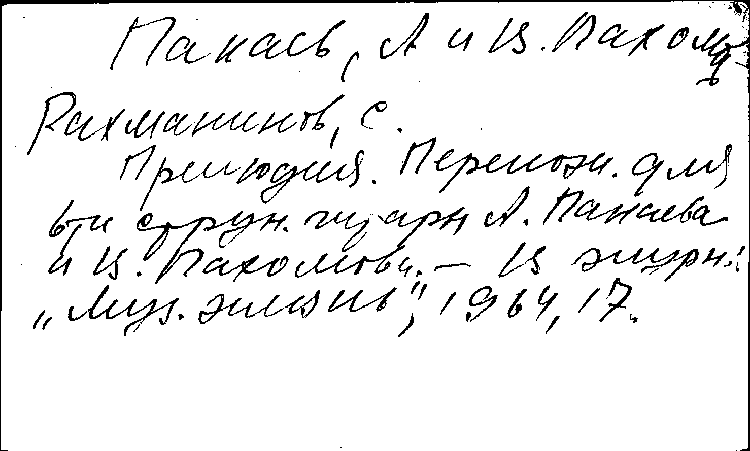 Панаев, А и В. Пахомов
Рахманинов, С.
Прелюдия. Перелож. для
6-ти струн. гитары А. Панаева
и В. Пахомова. — В журн.:
„Муз. жизнь", 1964, 17.